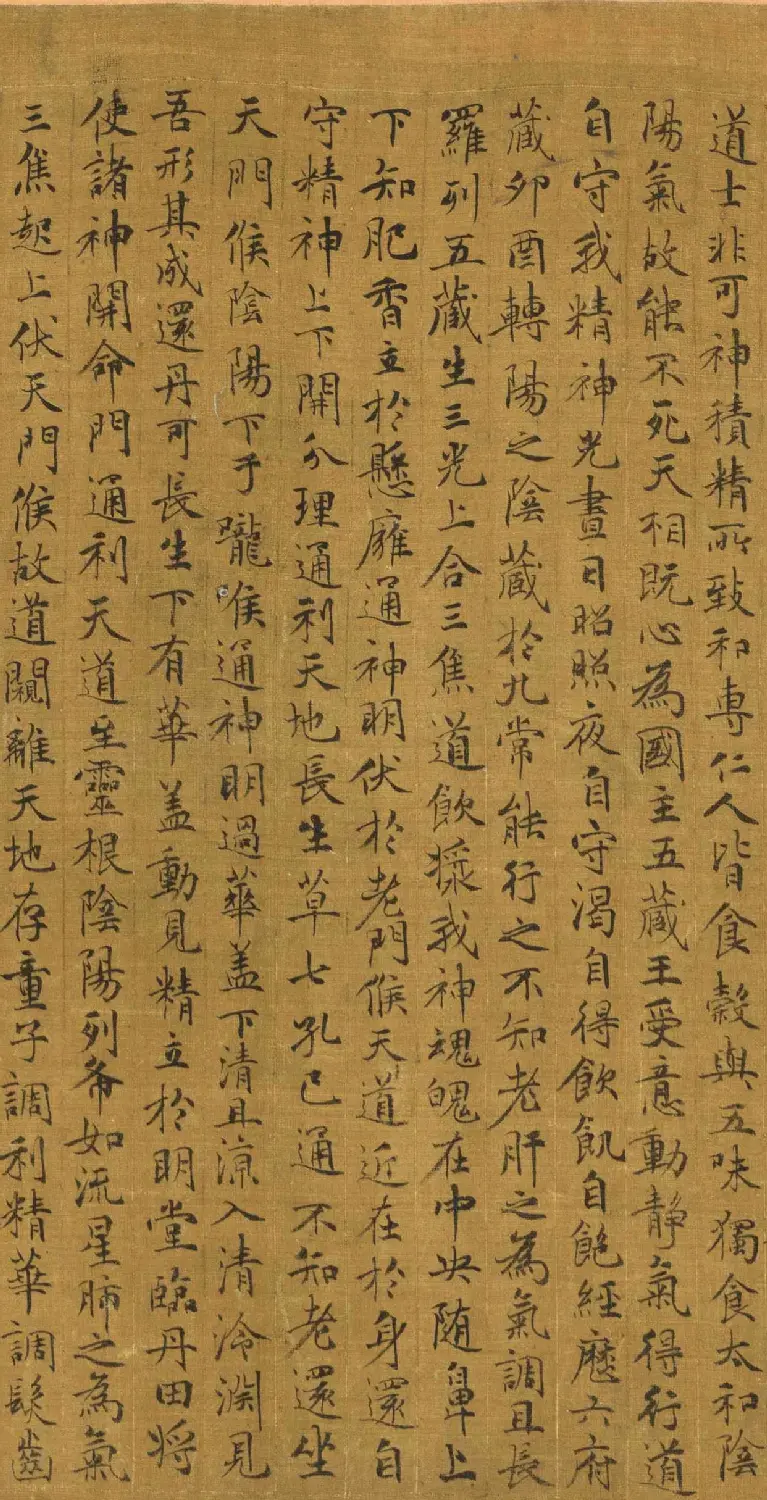 道士非可神積精所致和專仁人皆食穀與五味獨食太和陰
陽氣故能不死天相既心為國主五藏王受意動靜氣得行道
自守我精神光晝日昭照夜自守渴自得飲飢自飽經歷六府
藏卯酉轉陽之陰藏於九常能行之不知老肝之為氣調且長
羅列五藏生三光上合三焦道飲漿我神魂魄在中央随鼻上
下知肥香立於懸廱通神明伏於老門候天道近在於身還自
守精神上下開分理通利天地長生草七孔已通不知老還坐
天門候陰陽下于嚨喉通神明過華盖下清且涼入清泠淵見
吾形其成還丹可長生下有華盖動見精立於明堂臨丹田将
使諸神開命門通利天道至靈根陰陽列布如流星肺之為氣
三焦起上伏天門候故道闚離天地存童子調利精華調髮齒